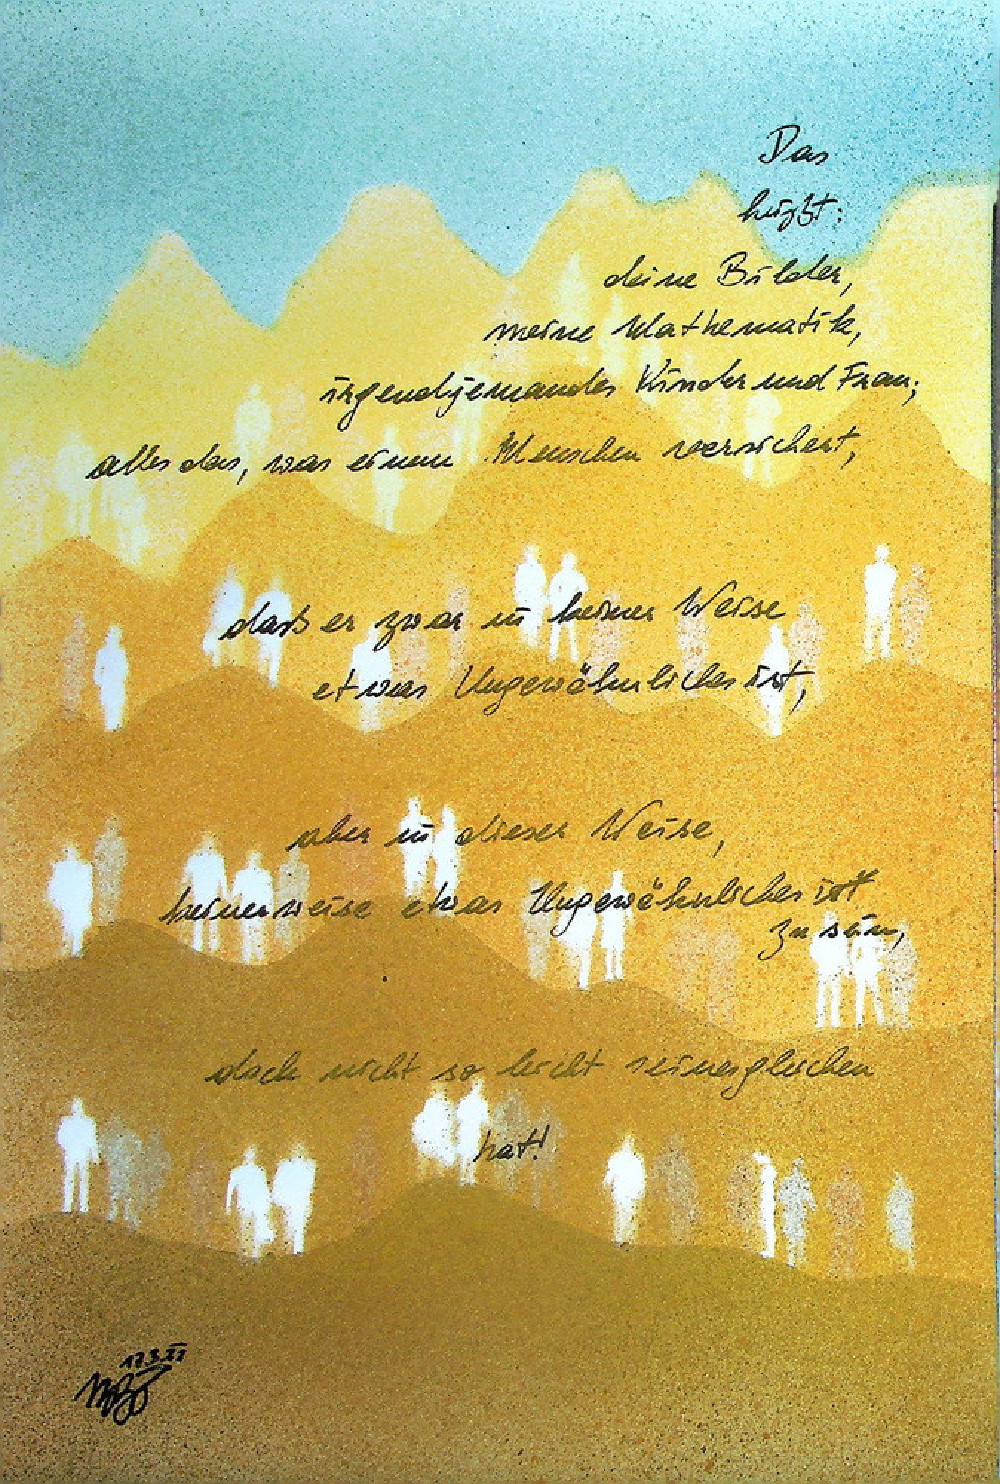 Das
heißt:
deine Bilder,
meine Mathematik,
irgendjemandes Kinder und Frau;
alles das, was einem Menschen versichert,
daß er zwar in keiner Weise
etwas Ungewöhnliches ist,
aber in dieser Weise,
keinerweise etwas Ungewöhnliches ist
zu sein,
doch nicht so leicht seinesgleichen
hat!